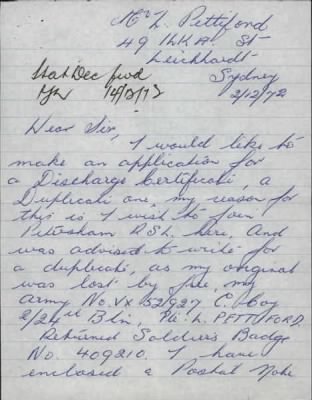 Mr L. Pettiford
49 St
Leichhardt
Sydney
2/12/72
Stat Dec fwd
14/2/73
Dear Sir,
I would like to
make an application for
a Discharge Certificate, a
Duplicate one, my reason for
this is I wish to join
Petersham RSL here. And
was advised to write for
a duplicate, as my original
was lost by fire, my
army No. VX 52927 C. Coy
2/24th Bln, Pte. L. PETTIFORD.
Returned Soldiers Badge
No. 409210. I have
enclosed a Postal Note